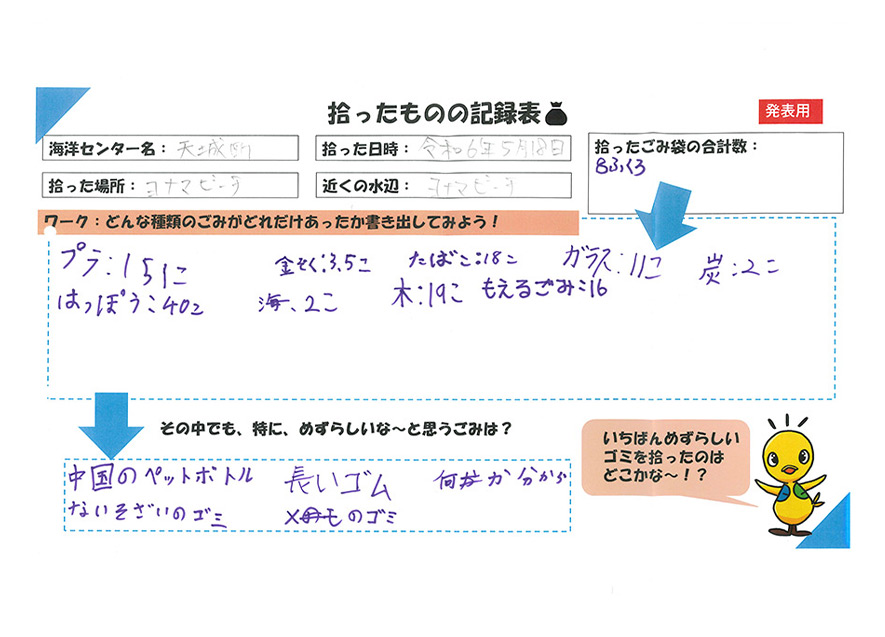 拾ったものの記録表
発表用
海洋センター名：天城町
拾った日時：令和6年5月18日
拾ったごみ袋の合計数：
8ふくろ
拾った場所：ヨナマビーチ
近くの水辺：ヨナマビーチ
ワーク：どんな種類のごみがどれだけあったか書き出してみよう！
プラ：151こ
金ぞく：3.5こ
たばこ：18こ
ガラス：11こ
炭：2こ
はっぽう：40こ
海、2こ
木：19こ
もえるごみ：16
その中でも、特に、めずらしいな～と思うごみは？
いちばんめずらしい
ゴミを拾ったのは
どこかな～！？
中国のペットボトル
長いゴム
何か分から
ないそざいのゴミ
ものゴミ